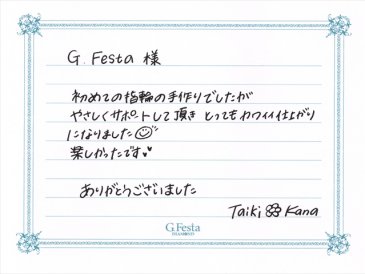 G. Festa 様
初めての指輪の手作りでしたが
やさしくサポートして頂き とってもカワイイ仕上がり
になりました
楽しかったです
ありがとうございました
Taiki Kana
G.Festa